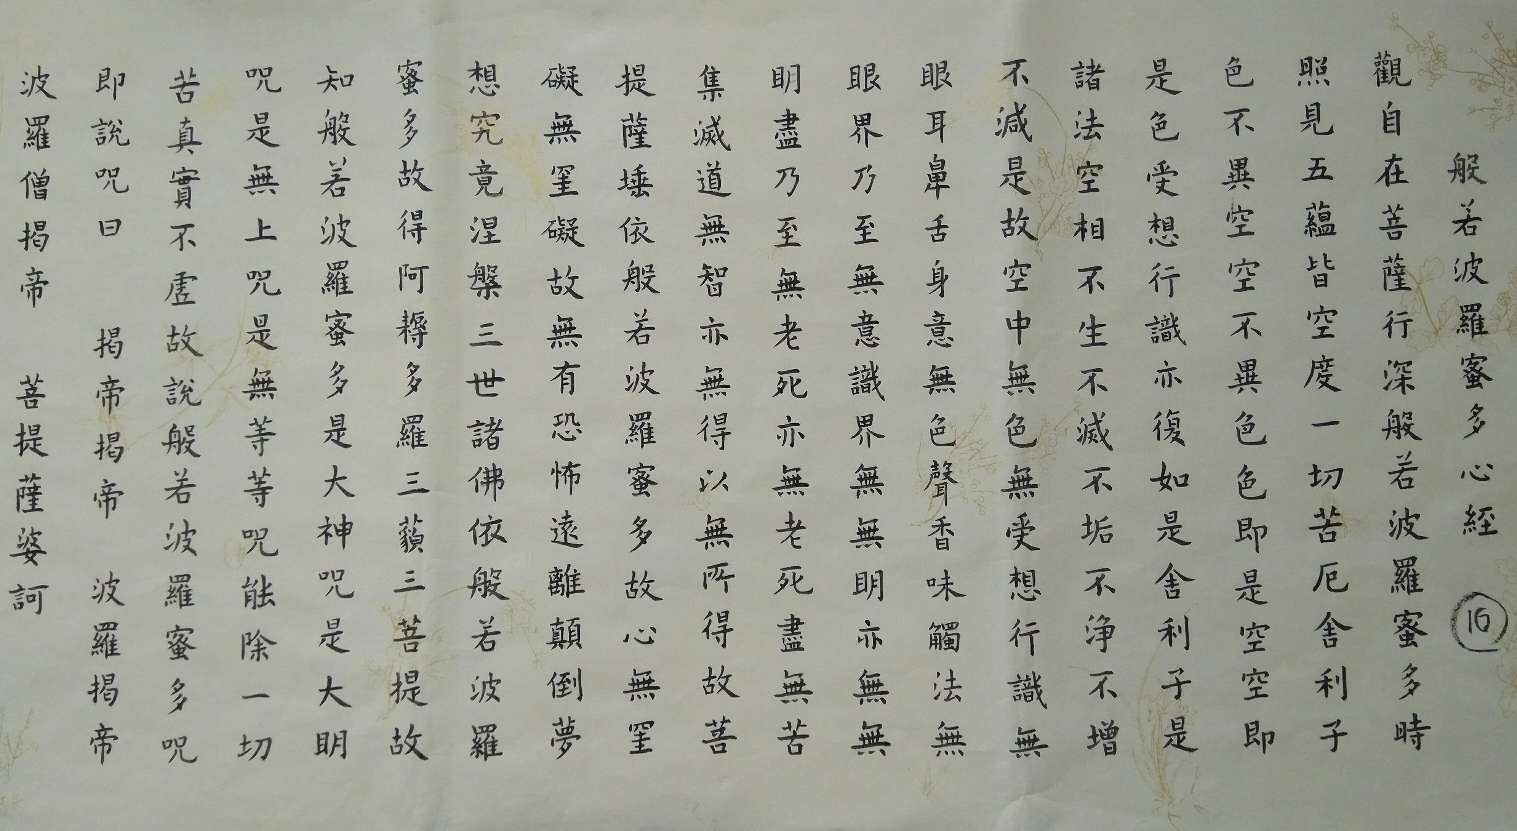 般若波羅蜜多心経
16
觀自在菩薩行深般若波羅蜜多時
照見五蘊皆空度一切苦厄舎利子
色不異空空不異色色即是空空即
是色受想行識亦復如是舎利子是
諸法空相不生不滅不垢不浄不増
不減是故空中無色無受想行識無
眼耳鼻舌身意無色聲香味觸法無
眼界乃至無意識界無無明亦無無
明盡乃至無老死亦無老死盡無苦
集滅道無智亦無得以無所得故菩
提薩埵依般若波羅蜜多故心無罣
礙無罣礙故無有恐怖遠離顛倒夢
想究竟涅槃三世諸佛依般若波羅
蜜多故得阿耨多羅三藐三菩提故
知般若波羅蜜多是大神呪是大明
呪是無上呪是無等等呪能除一切
苦真實不虚故説般若波羅蜜多呪
即説呪曰 揭帝揭帝 波羅揭帝
波羅僧揭帝 菩提薩婆訶